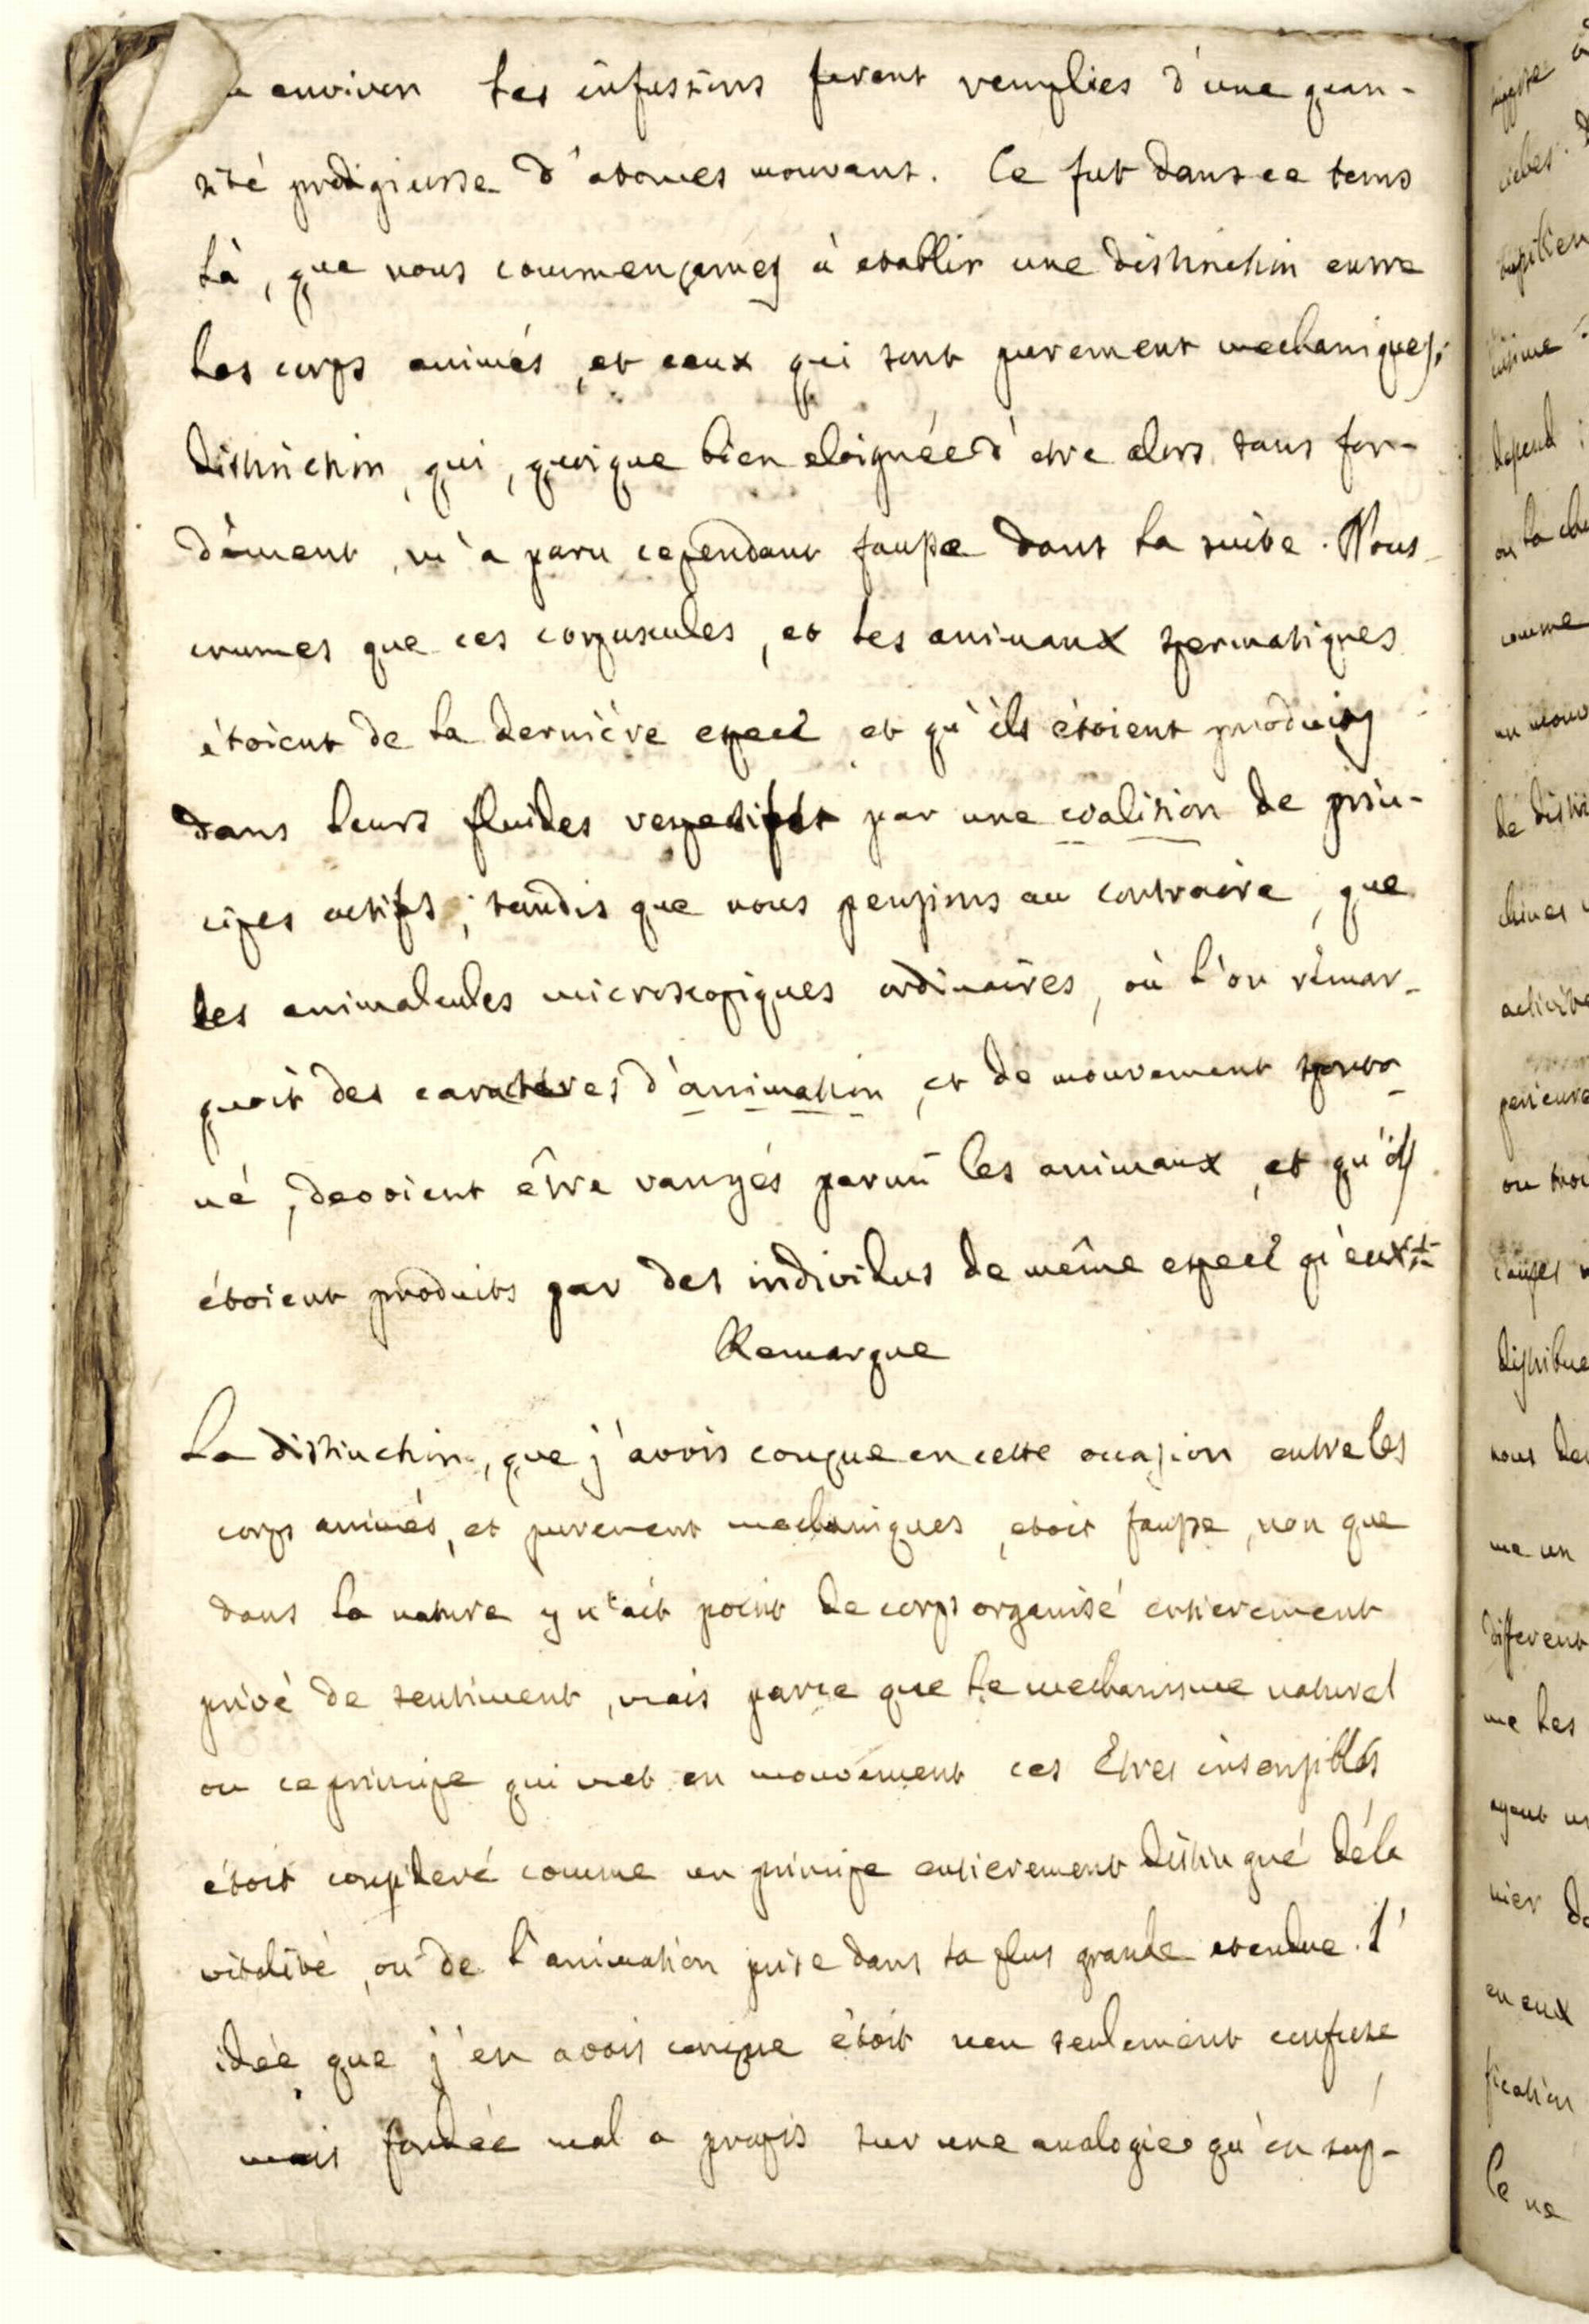 environ les infusions furent remplies d'une quan-
tité prodigieuse d'atomes mouvans. Ce fut dans ce tems
là, que nous commençames à etablir une distinction entre
les corps animés, et ceux qui sont purement mechaniques;
distinction, qui, quoique bien eloignée d'etre alors sans fon-
dement, m'a paru cependant fausse dans la suite. Nous
crumes que ces corpuscules, et les animaux spermatiques
étoient de la derniére espece et qu'ils étoient produits
dans leurs fluides respectifs par une coalision de prin-
cipes actifs; tandis que nous pensions au contraire, que
les animalcules microscopiques ordinaires, où l'on remar-
quoit des caractéres d'animation, et de mouvement sponta
né, devoient être rangés parmi les animaux, et qu'ils
étoient produits par des individus de même espece qu'eux
Remarque
La distinction, que j'avois conçue en cette occasion entre les
corps animés, et purement mechaniques, etoit fausse, non que
dans la nature y n'ait point de corps organisé entierement
privé de sentiment, mais parce que le mechanisme naturel
ou ce principe qui met en mouvement ces Etres insensibles
étoit consideré comme un principe entierement distingué de la
vitalité, ou de l'animation prise dans sa plus grande etendue. L'
idée que j'en avois conçue étoit non seulement confuse,
mais fondée mal a propos sur une analogie qu'on sup-
comme
depend;
different
me les
en eux